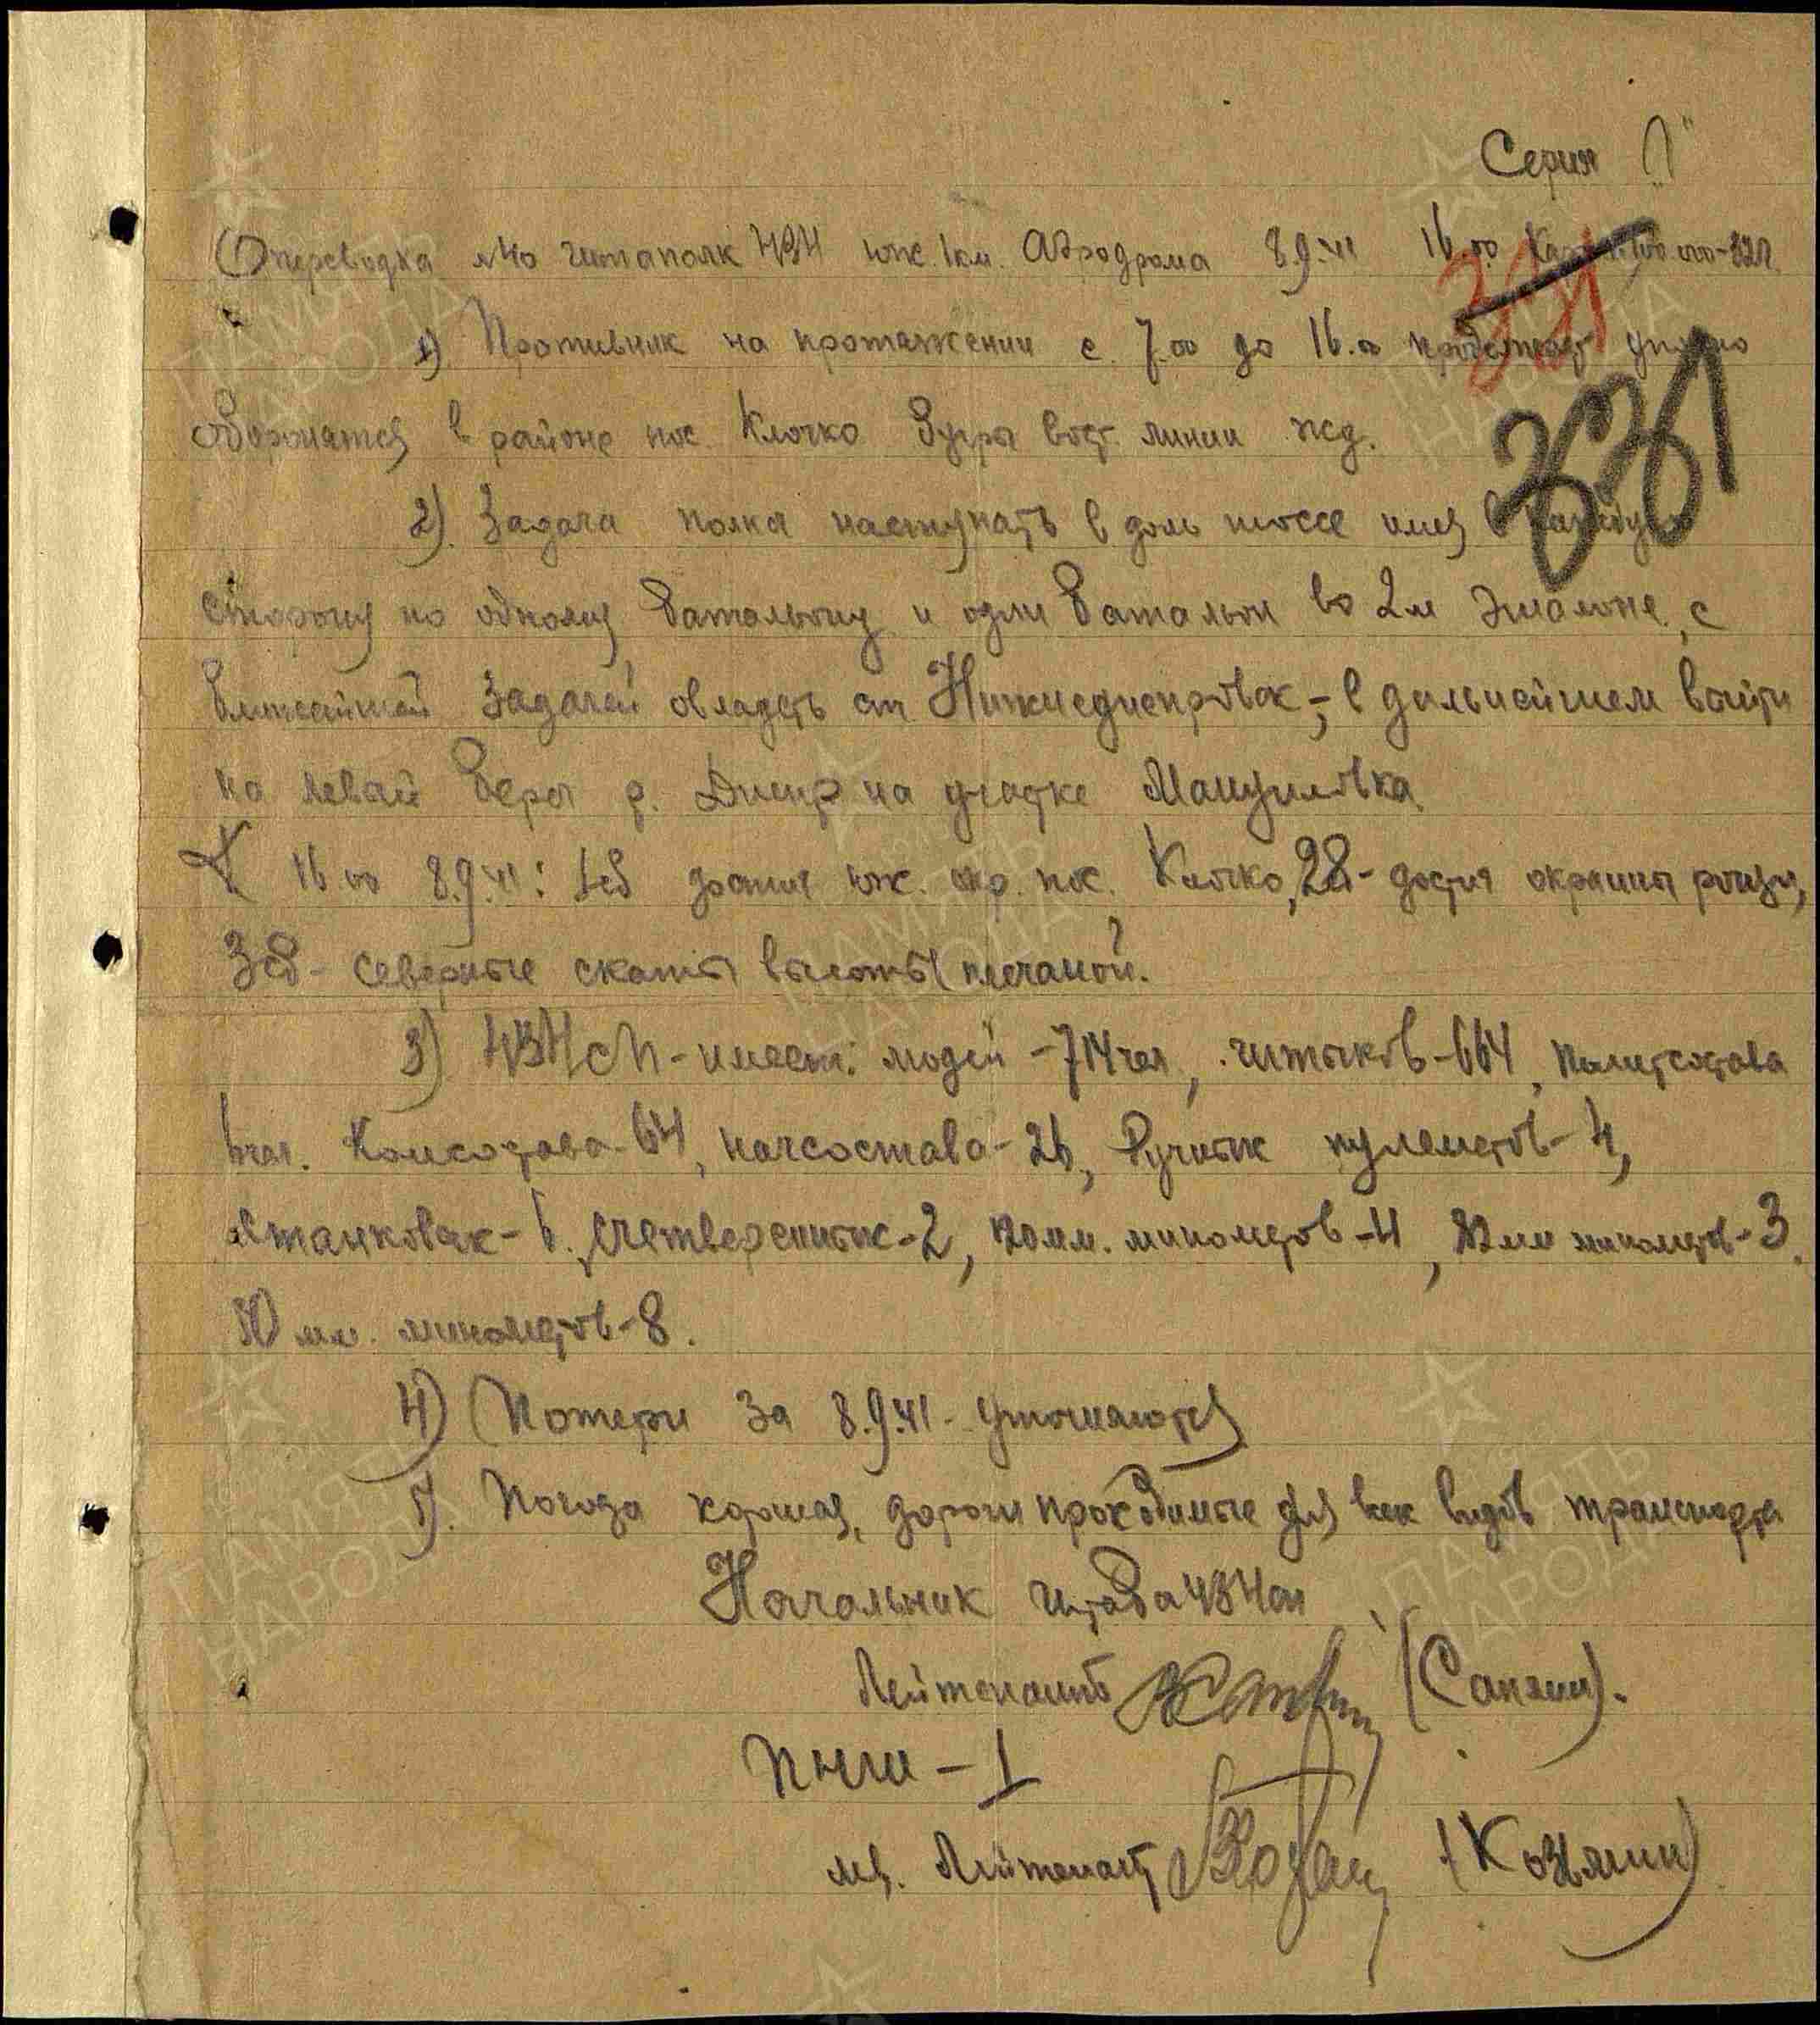 Серия "Г"
Оперсводка №40 штаполк 434 юж. 1км. Аэродрома 8.9.41 16.00 Карта 100.000-32г.
331
1) Противник на протяжении с 7.00 до 16.00 продолжает упорно
331
обороняться в районе пос. Клочко Бугры вост. линии жд.
2). Задача полка наступать в доль шоссе имея в каждую
сторону по одному батальону и один батальон во 2м эшалоне, с
ближайшей задачей овладеть ст. Нижнеднепровск, - в дальнейшем выйти
на левый берег р. Днепр на участке Мануиловка.
К 16.00 8.9.41: 1сб достиг юж. окр. пос. Клочко, 2сб - достиг окраины рощи,
3сб - северные скаты высоты песчаной.
3) 434 СП - имеет: людей - 714 чел, штыков - 664, политсостава
6 чел. Комсостава - 64, начсостава - 26, Ручных пулеметов - 4,
станковых - 6, счетверенных - 2, 120 мм. минометов - 4, 82 мм минометов - 3.
50 мм. минометов - 8.
4) Потери за 8.9.41 - уточняются
5). Погода хорошая, дороги проходимые для всех видов транспорта
Начальник штаба 434 сп
Лейтенант (Санкин).
ПНШ - 1
мл. Лейтенант (Козьмин)
ПАМЯТЬ НАРОДА